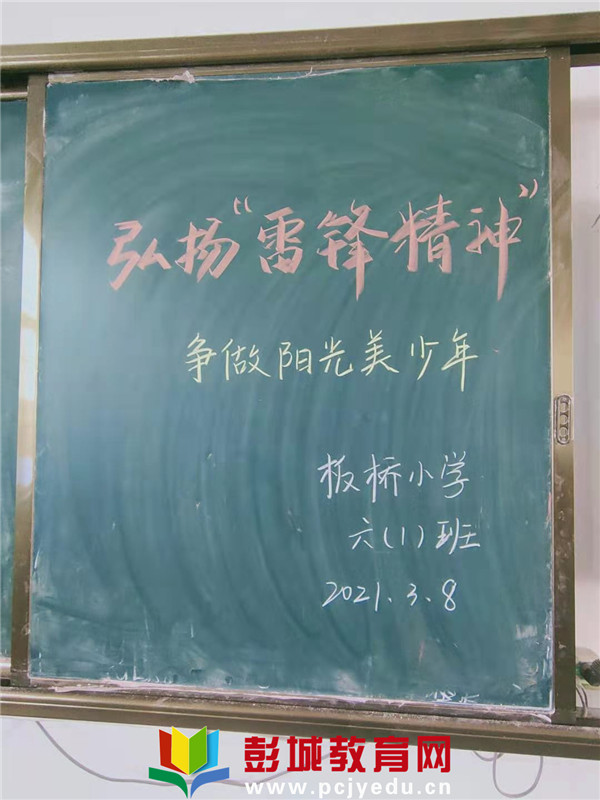 弘扬“雷锋精神”
争做阳光美少年
板桥小学
六(1)班
2021.3.8
彭城教育网
www.pcjyedu.cn